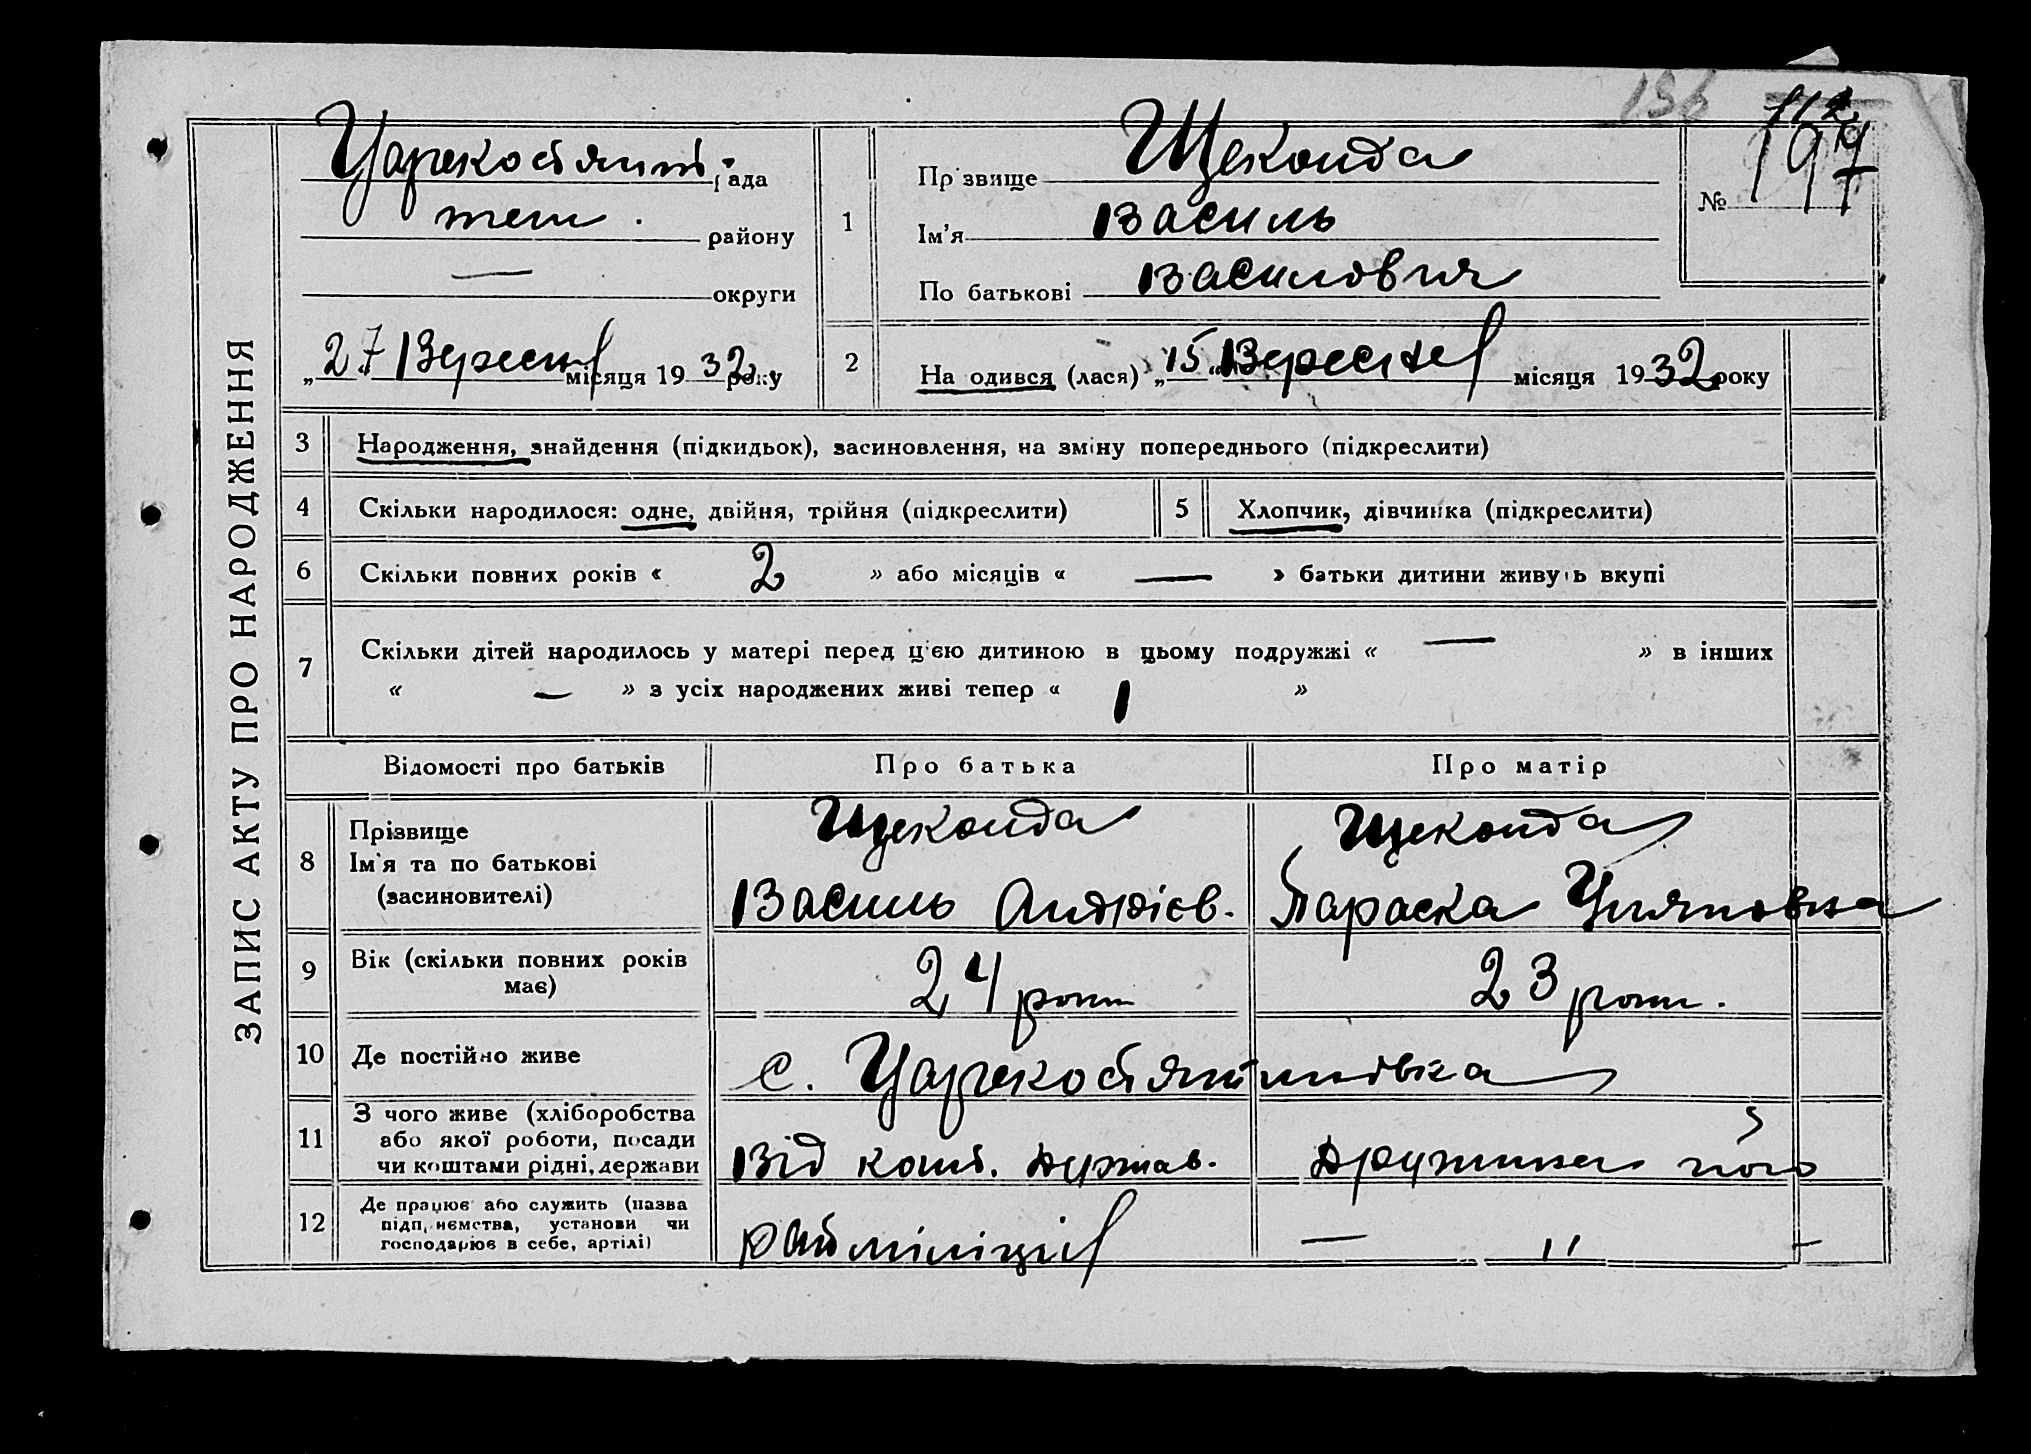 136
112
ЗАПИС АКТУ ПРО НАРОДЖЕННЯ
Царекостянт. рада
теж. району
— округи
„27 Вересня місяця 1932 року
1 Прізвище Щеконда
Ім'я Василь
По батькові Василович
№ 197
2 На одився (лася) „15" Вересня місяця 1932 року
3 Народження, знайдення (підкидьок), засиновлення, на зміну попереднього (підкреслити)
4 Скільки народилося: одне, двійня, трійня (підкреслити) 5 Хлопчик, дівчинка (підкреслити)
6 Скільки повних років « 2 » або місяців « — » батьки дитини живуть вкупі
7 Скільки дітей народилось у матері перед ц'єю дитиною в цьому подружжі « — » в інших
« — » з усіх народжених живі тепер « 1 »
Відомості про батьків Про батька Про матір
8 Прізвище
Ім'я та по батькові
(засиновителі)
Щеконда
Василь Андрієв.
Щеконда
Параска
9 Вік (скільки повних років
має)
24 роки
23 роки.
10 Де постійно живе с. Царекостянтинівка
11 З чого живе (хліборобства
або якої роботи, посади
чи коштами рідні, держави
Від кошт. держав.
Дружина його
12 Де працює або служить (назва
підприємства, установи чи
господарює в себе, артілі)
райміліція
— " —